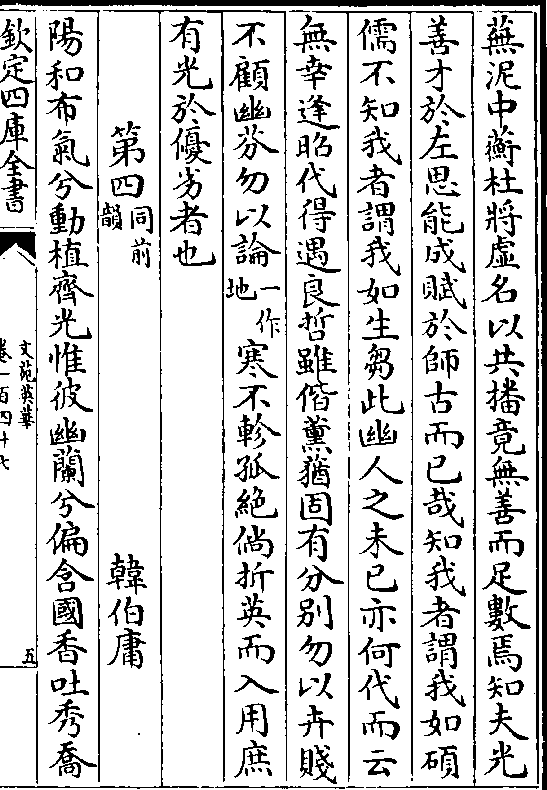 蕪泥中蘅杜將虛名以共播竟無善而足數焉知夫光
善才於左思能成賦於師古而已哉知我者謂我如碩
儒不知我者謂我如生芻此幽人之未已亦何代而云
無幸逢昭代得遇良哲雖偕薰猶固有分别勿以卉賤
不顧幽芬勿以論一作地寒不軫孤絶倘折英而入用庶
有光於優劣者也
第四同前韻 韓伯庸
陽和布氣兮動植齊光惟彼幽蘭兮偏含國香吐秀喬
欽定四庫全書
文苑英華
卷一百四十七
五